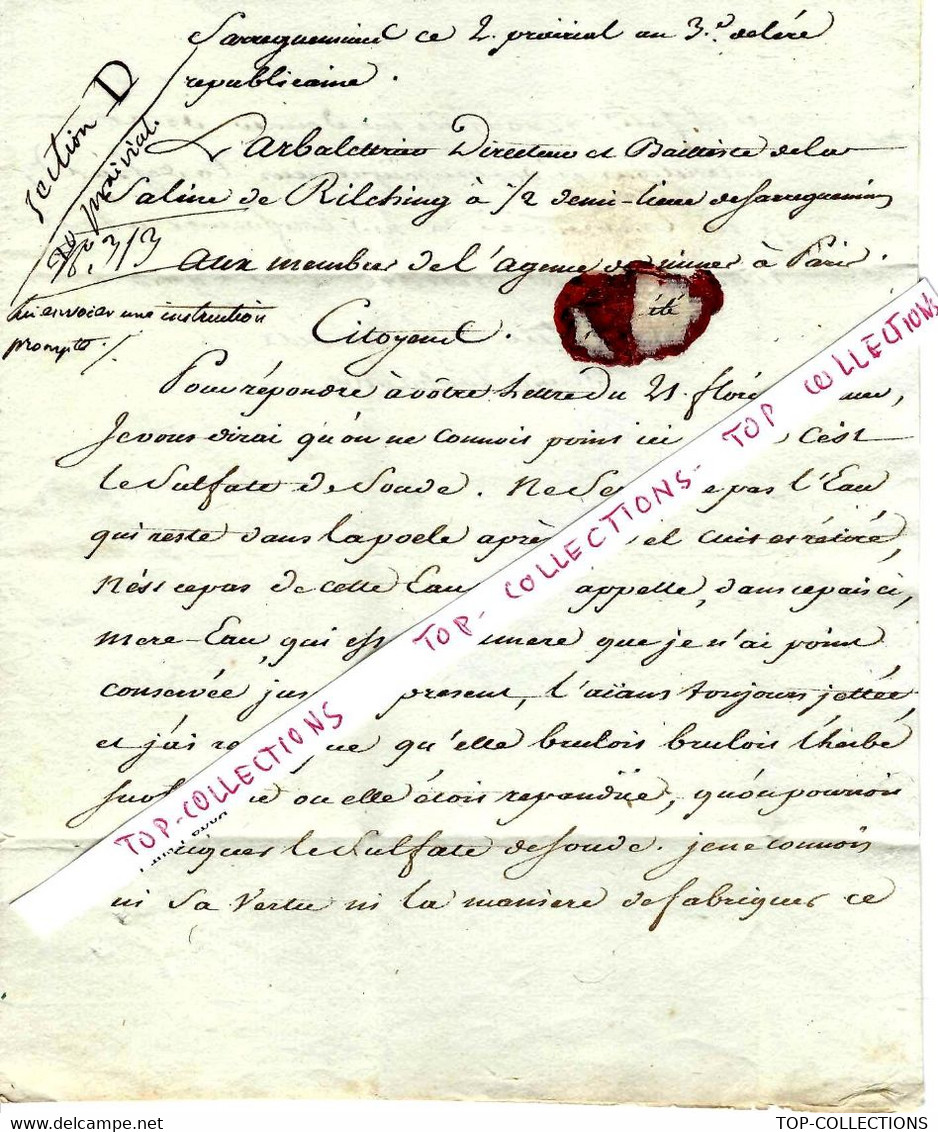 Sarreguemines ce 2. prairial an 3.e de l'ère
republicaine.
Section D
20 prairial.
N.° 313
lui envoier une instruction
prompte ./.
Larbalettrier Directeur et Bailliste de la
Saline de Rilching à 1/2 demi-lieue de Sarreguemines
aux membres de l'agence de mines à Paris.
été
Citoyens.
Pour répondre à vôtre Lettre du 21. floré
Je vous dirai qu'on ne connois point ici c'est
le Sulfate de Soude. Ne Se pas l'Eau
qui reste dans la poele après el cuit et rétiré,
N'est ce pas de cette Eau appelle, dans ce pais ci,
mere-Eau, qui es amere que je n'ai point
conservée jus present, l'aïant toujours jettée,
et j'ai re que qu'elle brulois brulois l'herbe
ou elle étois repanduë, qu'on pourroit
le Sulfate de Soude. je ne connois
ni Sa Vertu ni la maniere de fabriquer ce
TOP-COLLECTIONS TOP- COLLECTIONS- TOP COLLECTIONS
TOP-COLLECTIONS